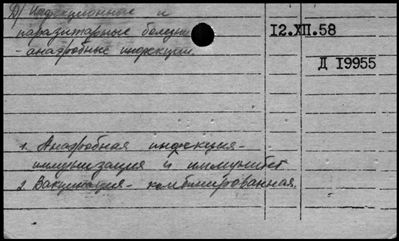 Д) Инфекционные и
паразитарные болезни
- анаэробные инфекции.
12.XII.58
Д 19955
1. Анаэробная инфекция-
иммунизация и иммунитет
2. Вакцинация- комбинированная.